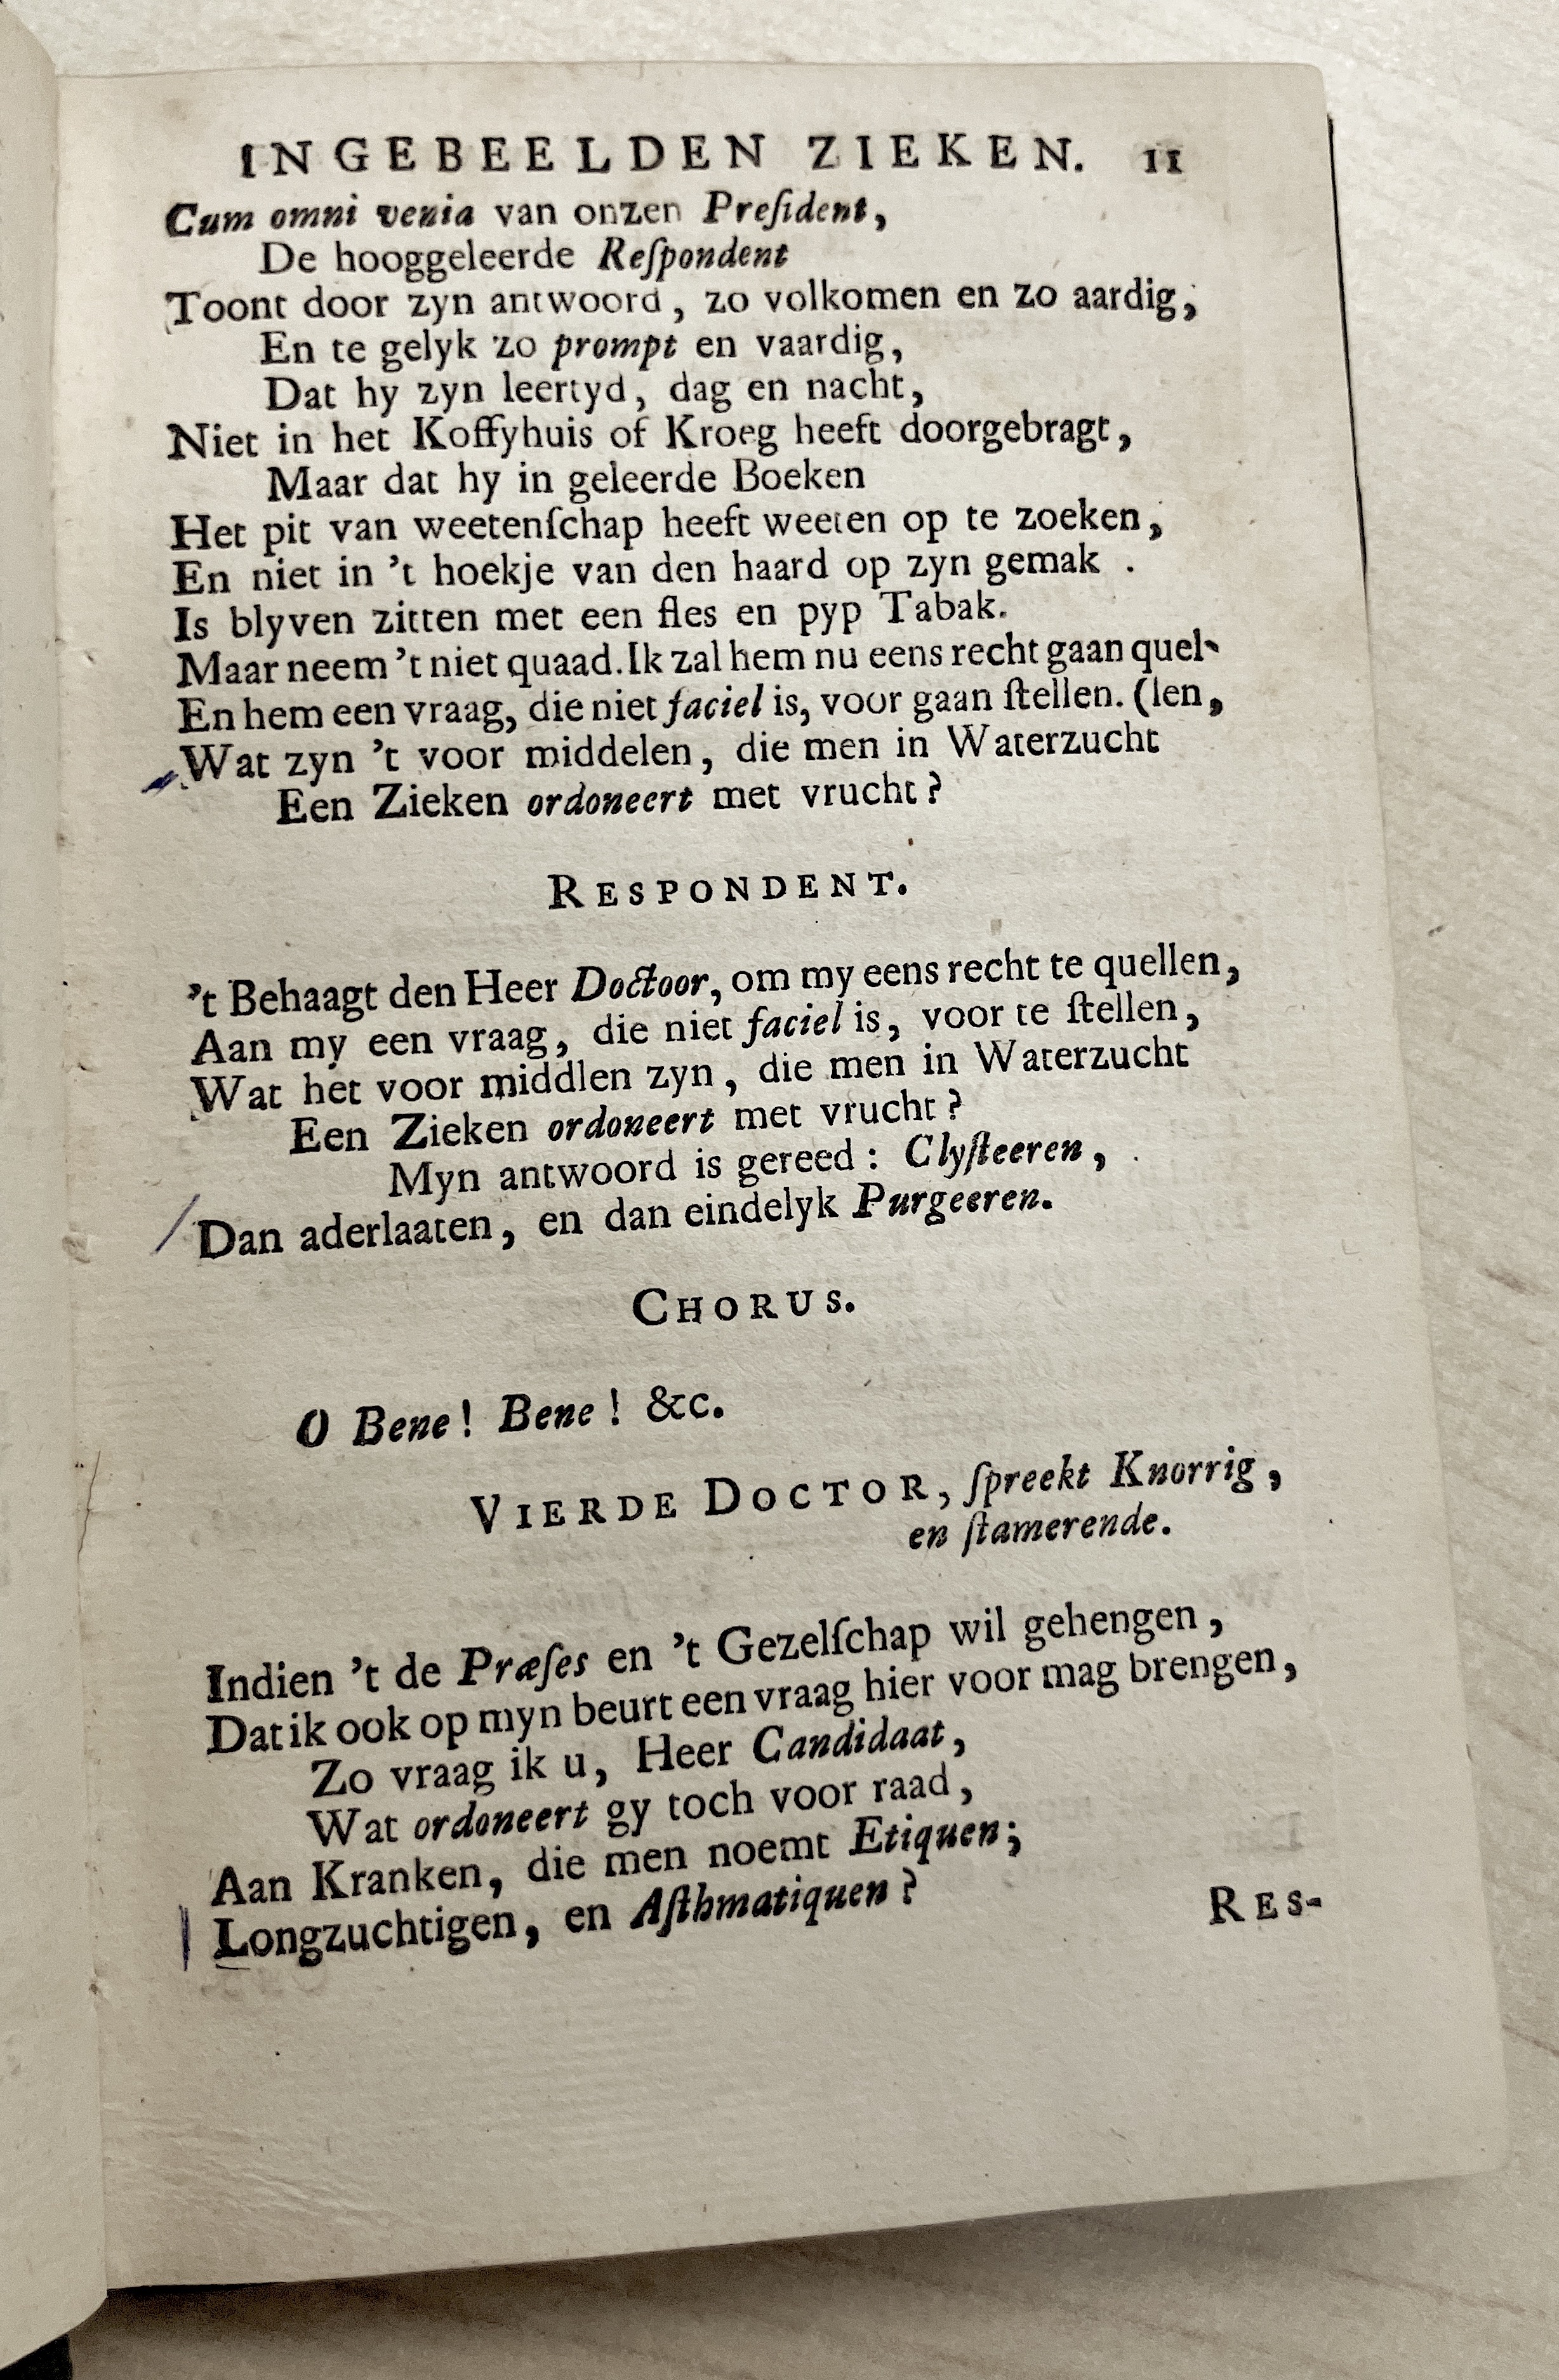 INGEBEELDEN ZIEKEN. 11
Cum omni venia van onzen Preſident,
De hooggeleerde Reſpondent
Toont door zyn antwoord, zo volkomen en zo aardig,
En te gelyk zo prompt en vaardig,
Dat hy zyn leertyd, dag en nacht,
Niet in het Koffyhuis of Kroeg heeft doorgebragt,
Maar dat hy in geleerde Boeken
Het pit van weetenſchap heeft weeten op te zoeken,
En niet in 't hoekje van den haard op zyn gemak .
Is blyven zitten met een fles en pyp Tabak.
Maar neem 't niet quaad. Ik zal hem nu eens recht gaan quel-
En hem een vraag, die niet faciel is, voor gaan ſtellen. (len,
Wat zyn 't voor middelen, die men in Waterzucht
Een Zieken ordoneert met vrucht?
RESPONDENT.
't Behaagt den Heer Doctoor, om my eens recht te quellen,
Aan my een vraag, die niet faciel is, voor te ſtellen,
Wat het voor middlen zyn, die men in Waterzucht
Een Zieken ordoneert met vrucht?
Myn antwoord is gereed: Clyſteeren,
Dan aderlaaten, en dan eindelyk Purgeeren.
CHORUS.
O Bene! Bene! &c.
VIERDE DOCTOR, ſpreekt Knorrig,
en ſtamerende.
Indien 't de Præſes en 't Gezelſchap wil gehengen,
Dat ik ook op myn beurt een vraag hier voor mag brengen,
Zo vraag ik u, Heer Candidaat,
Wat ordoneert gy toch voor raad,
Aan Kranken, die men noemt Etiquen;
Longzuchtigen, en Aſthmatiquen?
RES-